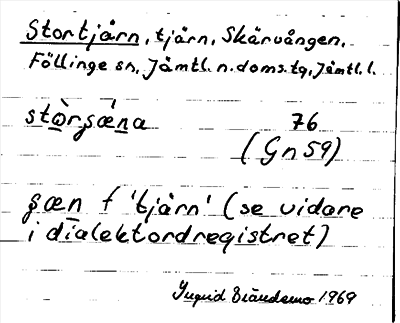 Stortjärn, tjärn, Skärvången,
Föllinge sn, Jämtl. n. doms. tg, Jämtl. l.
stòrṣǽna 76
(Gn 59)
ṣæn f 'tjärn' (se vidare
i dialektordregistret)
Ingrid Brändemo 1969